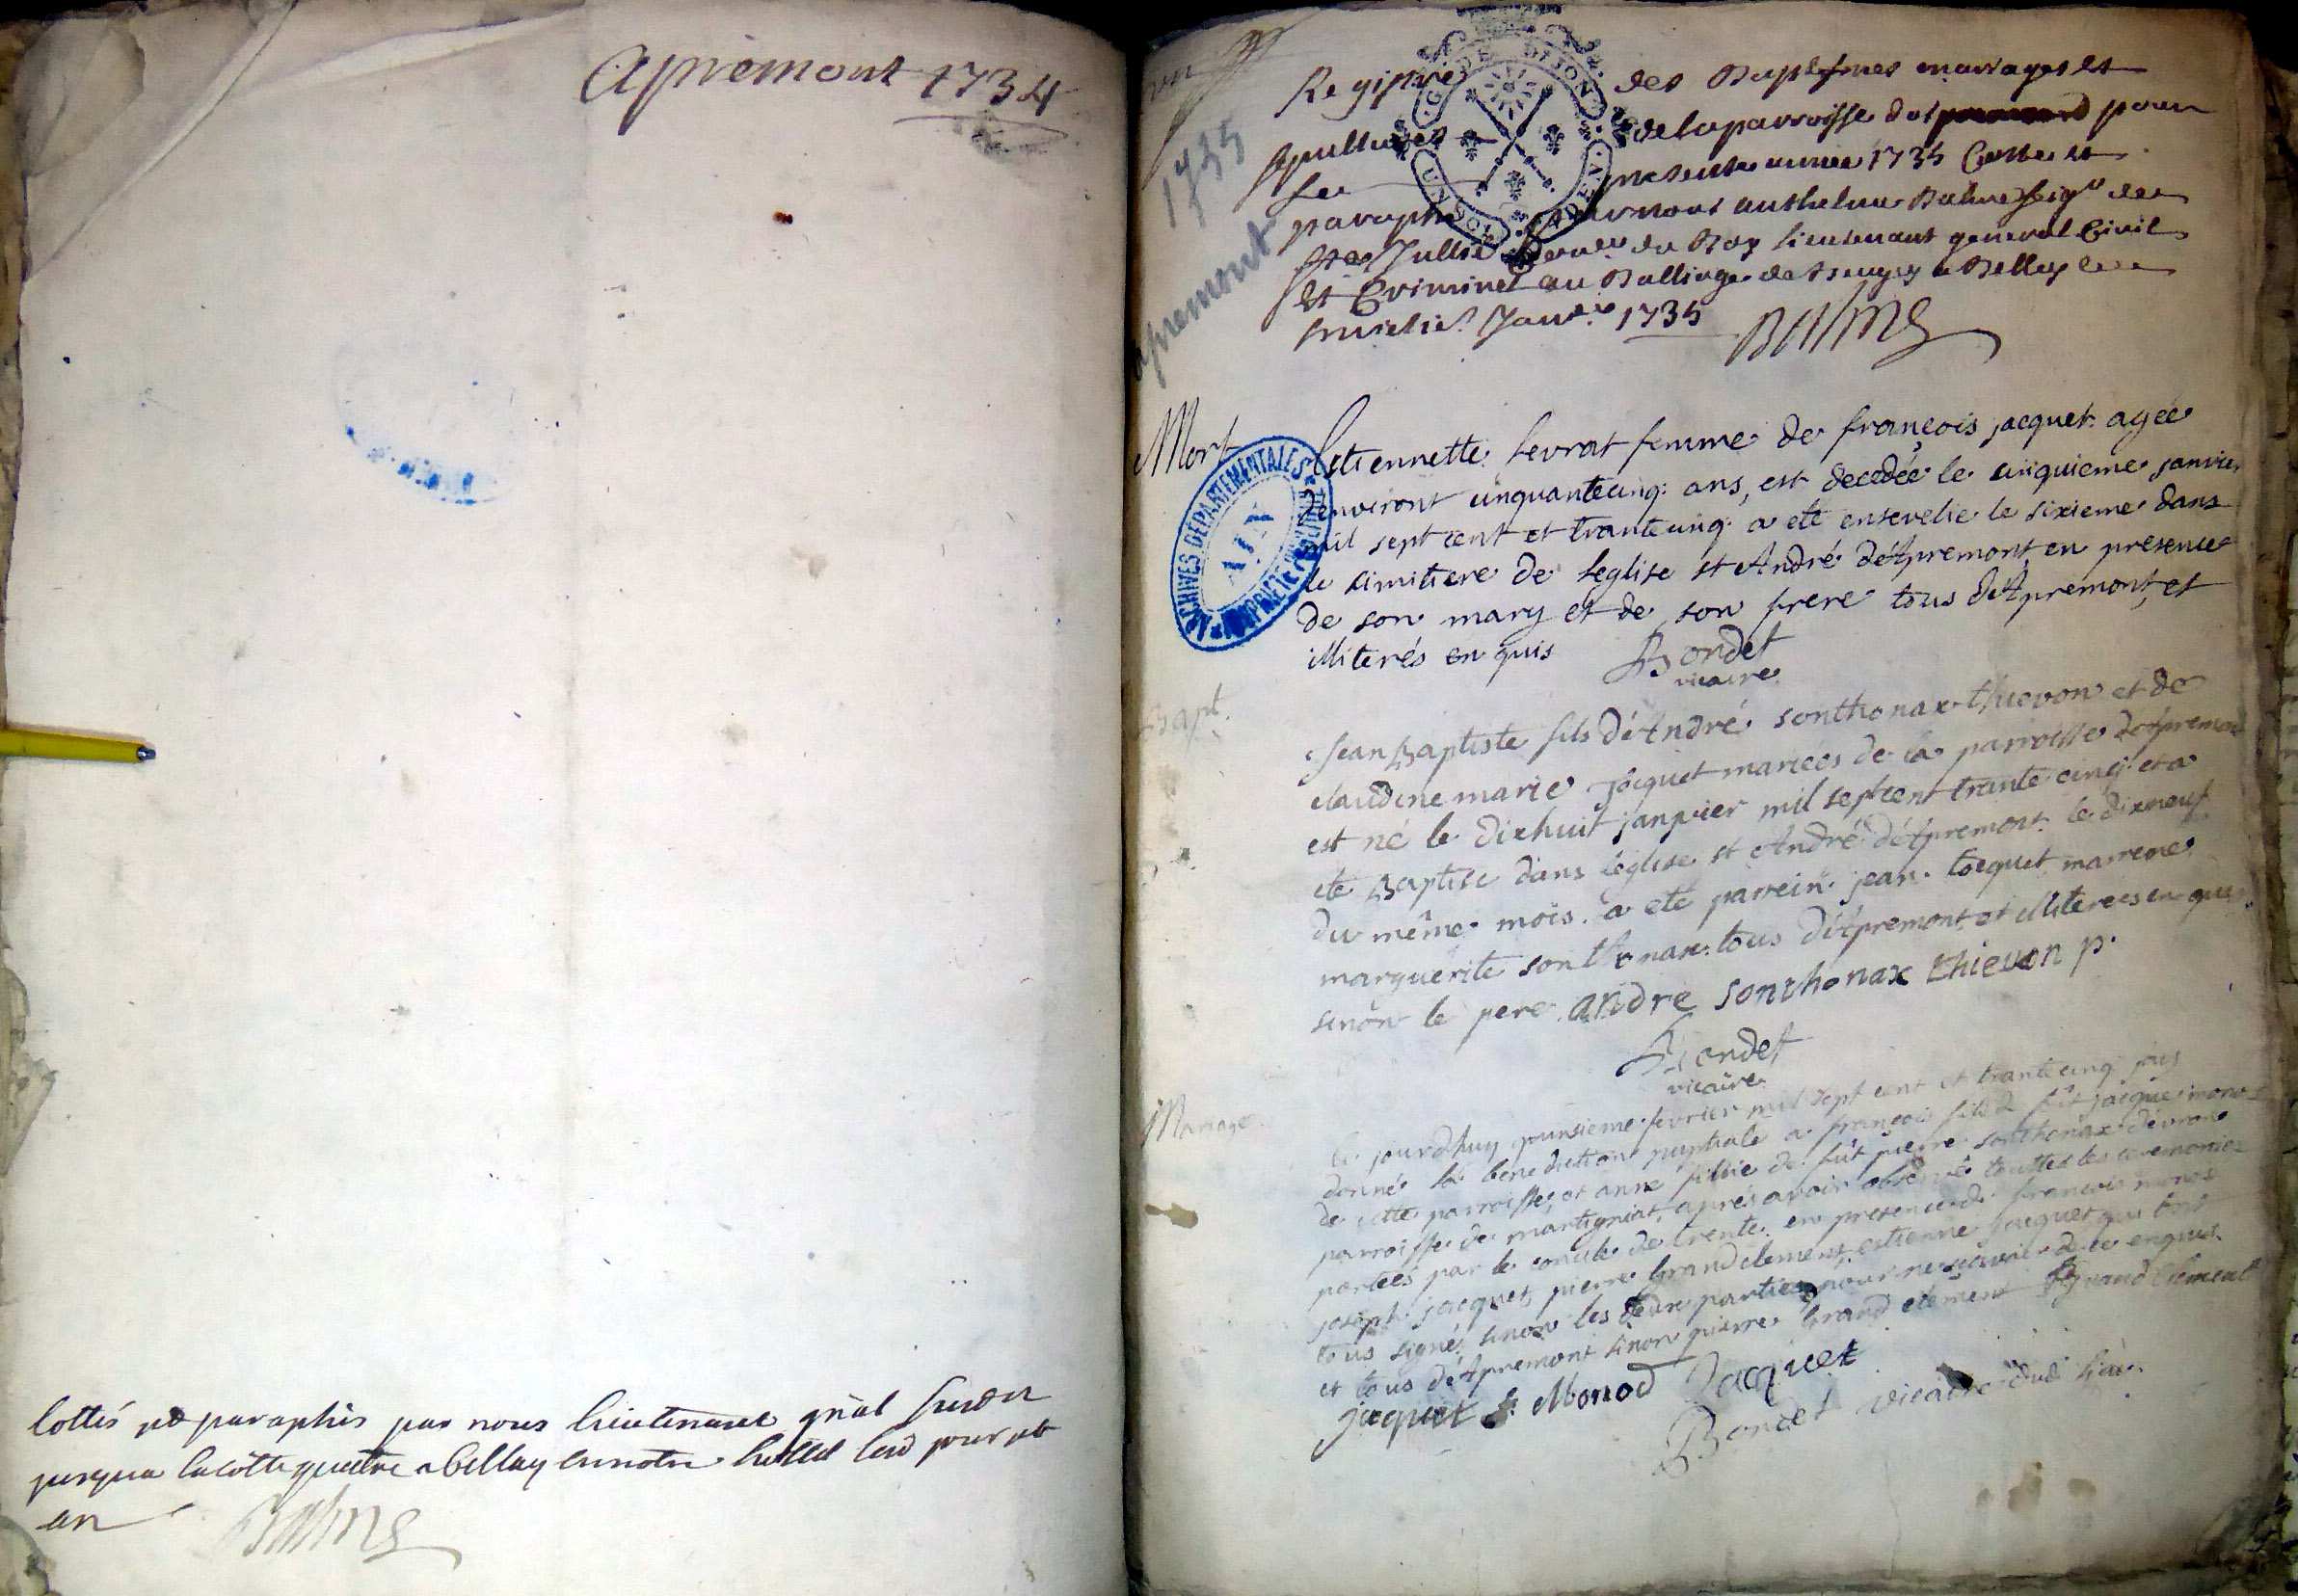 Apremont 1734
Cottés et paraphés par nous lieutenant gnal suson
jusqua la cotte quatre a belley en notre hostel led jour et
an
Balme
un
1735
apremont
Registre des Baptesmes mariages et
sepultures de la parroisse d'apremond pour
la presente année 1735 Cotté et
paraphé par nous anthelme Balme seigr de
stes Jullie du Roy lieutenant general Civil
et Criminel au Balliage de Bugey a Belley ce
Janvie 1735
Balme
G. DE DIJON
ARCHIVES DÉPARTEMENTALES
AIN
PROPRIÉTÉ PUBLIQUE
Mort
Estiennette Levrat femme de françois jacquet agée
denviront cinquantecinq ans, est decedée le cinquieme janvier
mil sept cent et trantecinq a eté ensevelie le sixieme dans
le cimitiere de leglise st André d'Apremont, en presence
de son mary et de son frere tous d'Apremont, et
illiterés enquis
Bondet
vicaire
Bapt.
Jean Baptiste fils d'André sonthonax thievon et de
claudine marie jacquet mariees de la parroisse d'Apremont
est né le dixhuit janvier mil septcent trante cinq et a
eté Baptisé dans leglise st André d'Apremont le dixneuf
du même mois. a eté parrein jean jacquet, marrene
marguerite sonthonax. tous d'Apremont, et illiterees enquis
sinon le pere. andre sonthonax thievon p.
Bondet
vicaire
Mariage
Ce jourdhuy quinsieme fevrier mil sept cent et trantecinq jais
donné la benediction nuptiale a françois fils de fût jacque monod
de cette parroisse, et anne fillie de fût pierre sonthonax d'evron
parroisse de martigniat, aprés avoir observé touttes les ceremonies
portées par le concile de trente. en presence de francois monod
joseph jacquet, pierre Grandclement, estienne jacquet qui tous
tous signé sinon les deux parties pour ne scavoir de ce enquis
et tous d'Apremont sinon pierre Grand clement P grand Clement
jacquet f. Monod Jacquet
Bondet vicaire dud lieu.